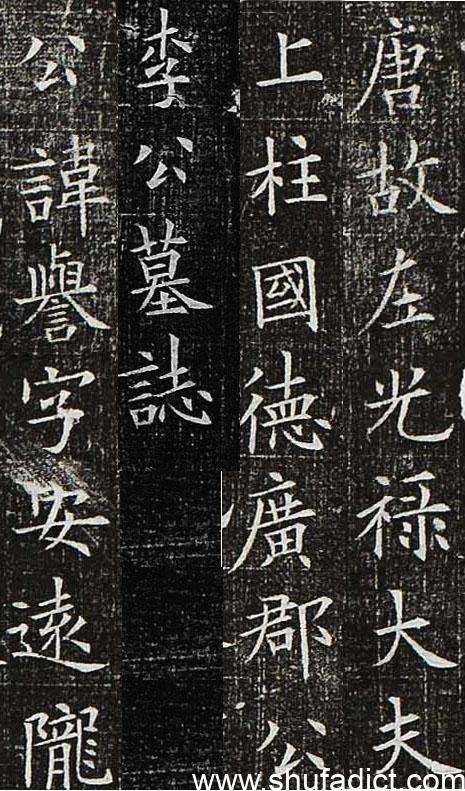 唐故左光禄大夫
上柱國德廣郡公
李公墓誌
公諱譽字安遠隴
www.shufadict.com